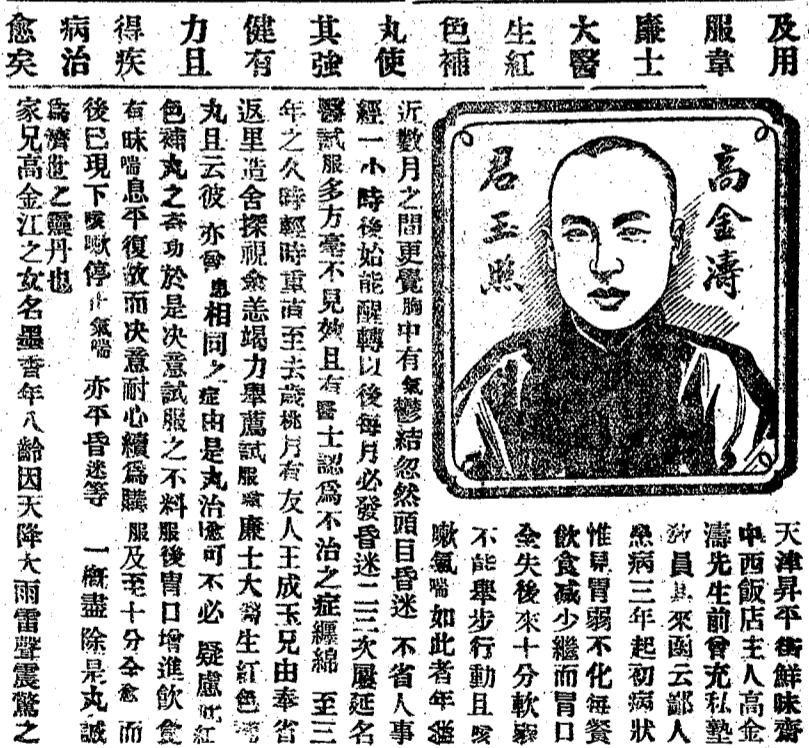 及用
服韋
廉士
大醫
生紅
色補
丸使
其強
健有
力且
得疾
病治
愈矣
高金濤
君玉照
天津昇平街鮮味齋
中西飯店主人高金
濤先生前曾充私塾
教員其來函云鄙人
患病三年起初病狀
惟見胃弱不化每餐
飲食减少繼而胃口
全失後來十分軟弱
不能舉步行動且咳
嗽氣喘如此者年餘
近數月之間更覺胸中有氣鬱結忽然頭目昏迷不省人事
經一小時後始能醒轉以後每月必發昏迷二三次屢延名
醫試服多方毫不見效且有醫士認爲不治之症纏綿至三
年之久時輕時重直至去歲桃月有友人王成玉兄由奉省
返里造舍探視余恙竭力舉薦試服韋廉士大醫生紅色補
丸且云彼亦曾患相同之症由是丸治愈可不必疑慮此紅
色補丸之奇功於是决意試服之不料服後胃口增進飲食
有味喘息平復故而决意耐心續爲購服及至十分全愈而
後已現下咳嗽停止氣喘亦平昏迷等一概盡除是丸誠
爲濟世之靈丹也
家兄高金江之女名墨香年八齡因天降大雨雷聲震驚之